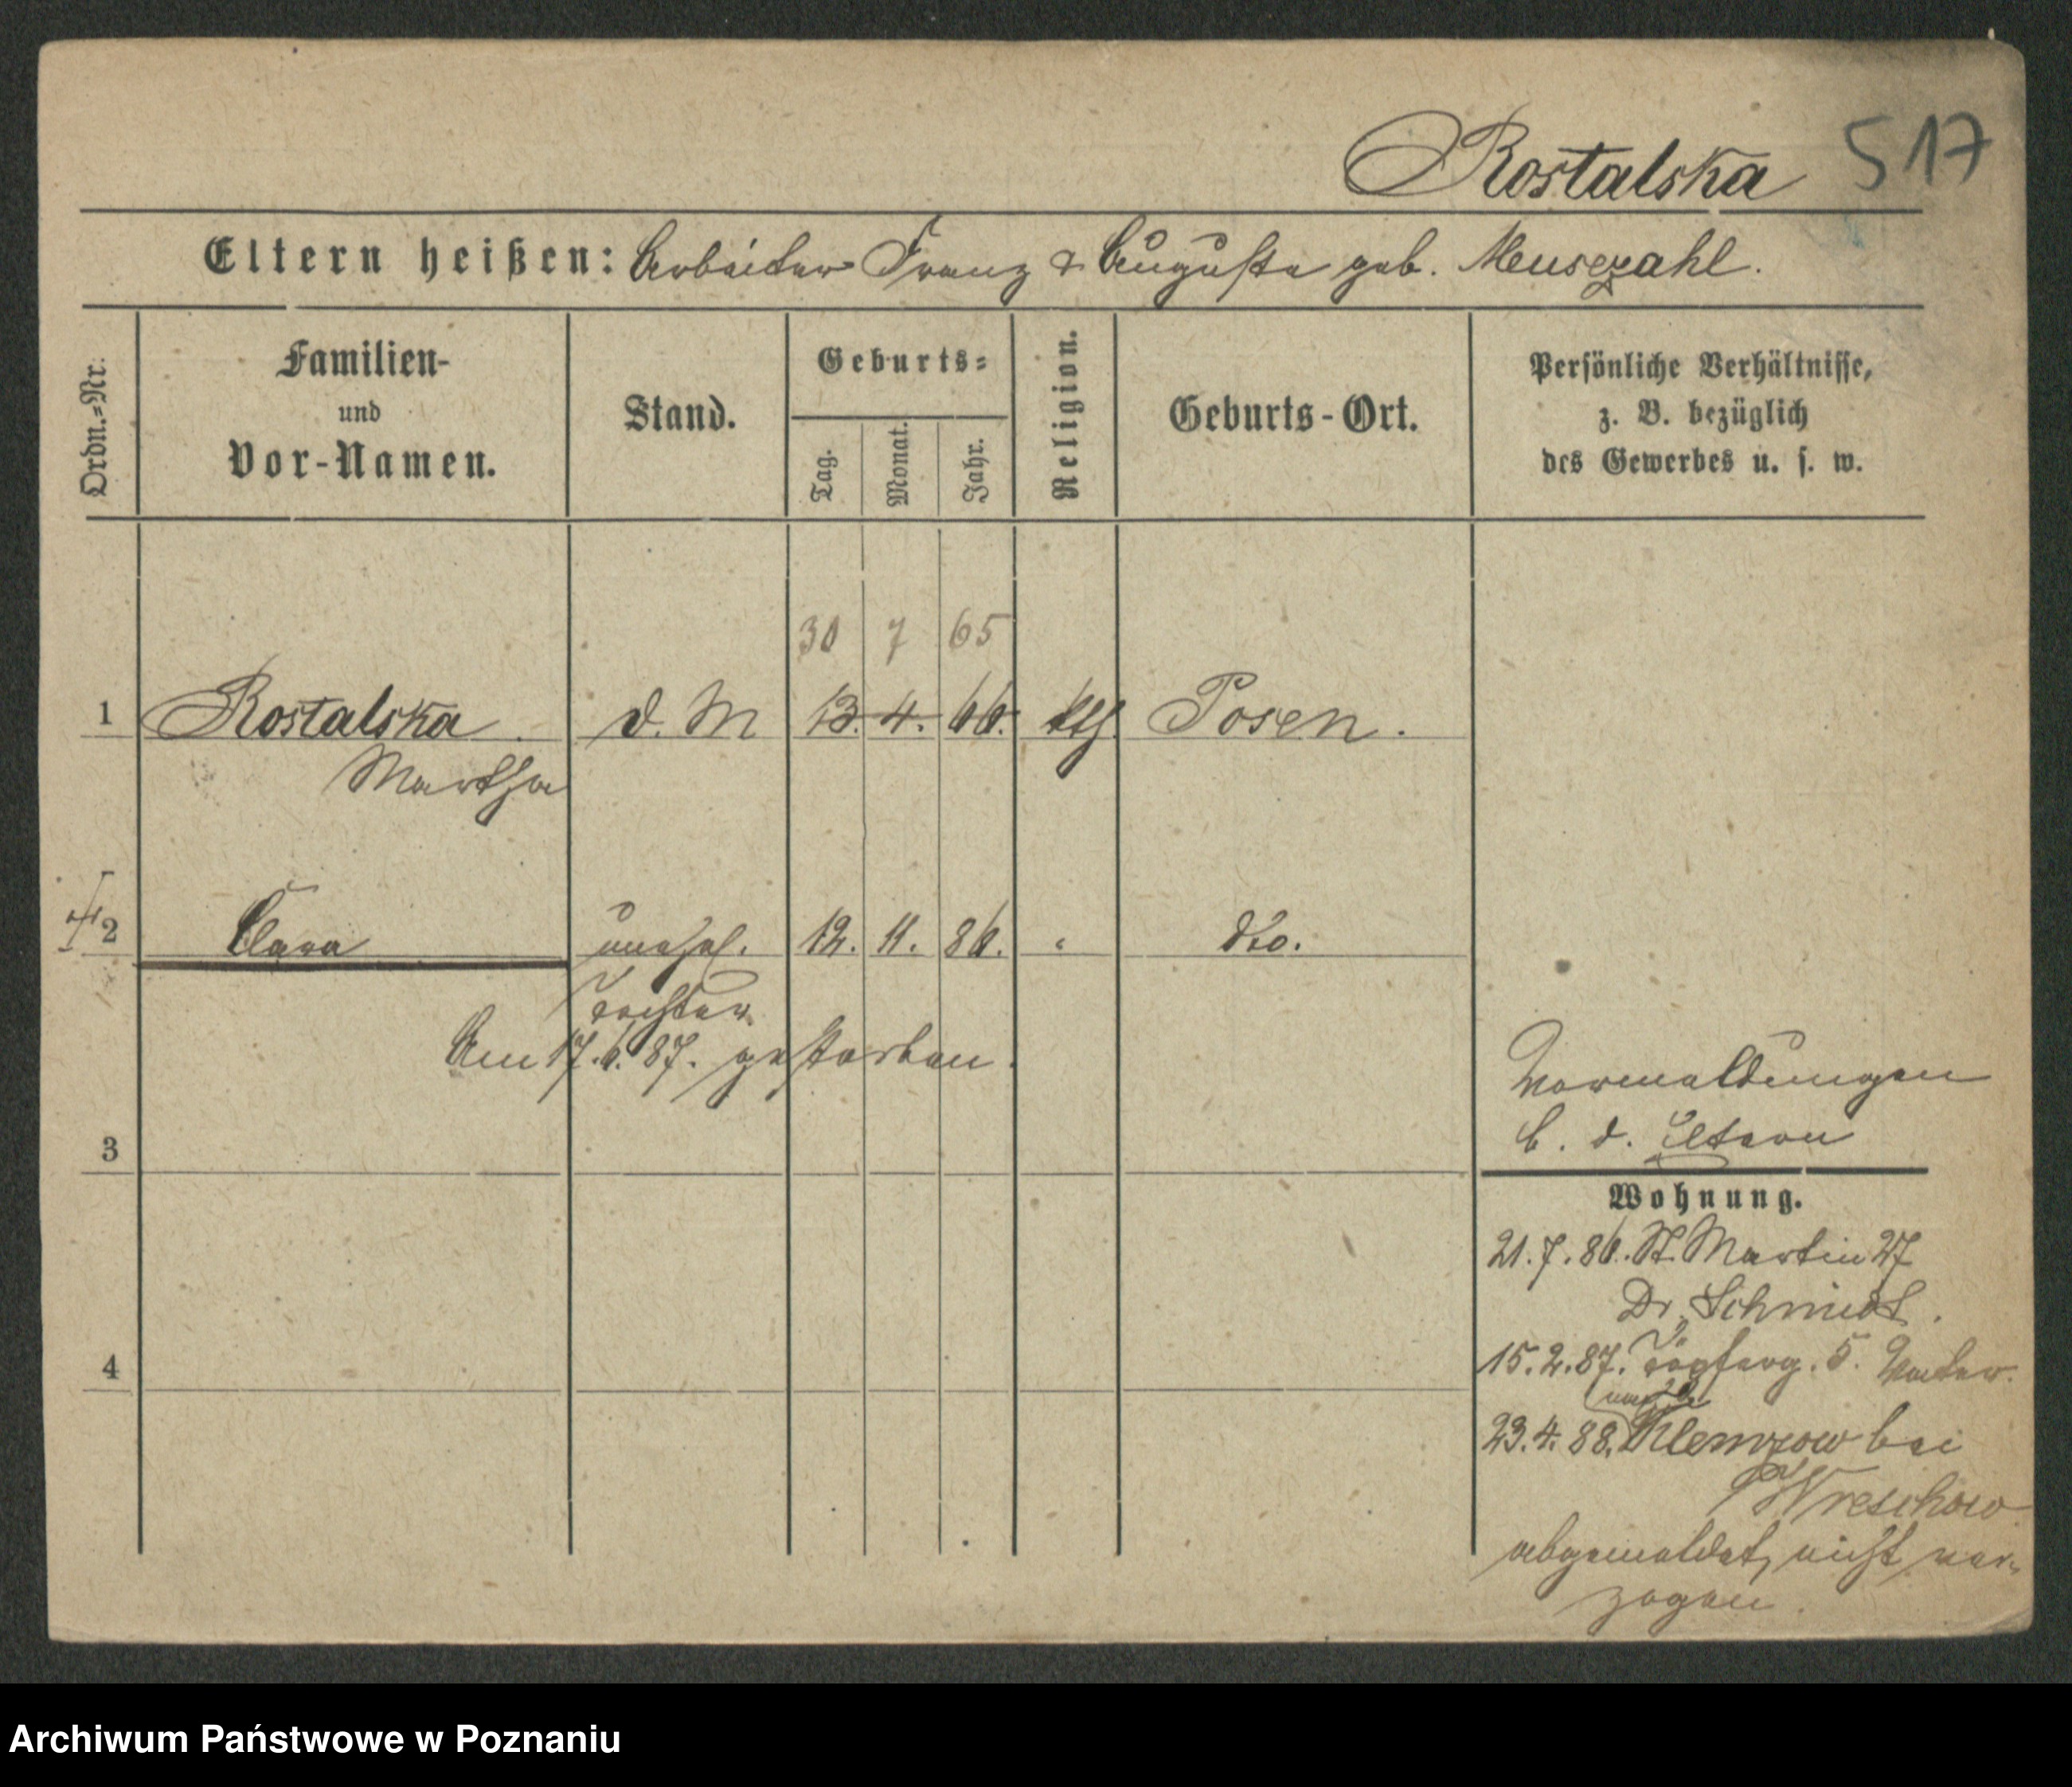 Rostalska 517
Eltern heißen: Arbeiter Franz & Auguste geb. Meusezahl.
Ordn.=Nr.
Familien-
und
Vor-Namen.
Stand.
Geburts=
Tag.
Monat.
Jahr.
Religion.
Geburts-Ort.
Persönliche Verhältnisse,
z. B. bezüglich
des Gewerbes u. s. w.
30 7 65
1 Rostalska d. M 13. 4. 66. kth. Posen.
Martha
2 Clara unehel. 12. 11. 86. " dto.
Tochter
Am 17.6.87. gestorben.
Vormeldungen
b. d. Eltern
3
Wohnung.
21.7.86. St. Martin 27
Dr. Schmidt.
15.2.87. Töpferg. 5. Vater.
4
23.4.88. bei
Wreschow
abgemeldet, nicht ver-
zogen.
Archiwum Państwowe w Poznaniu